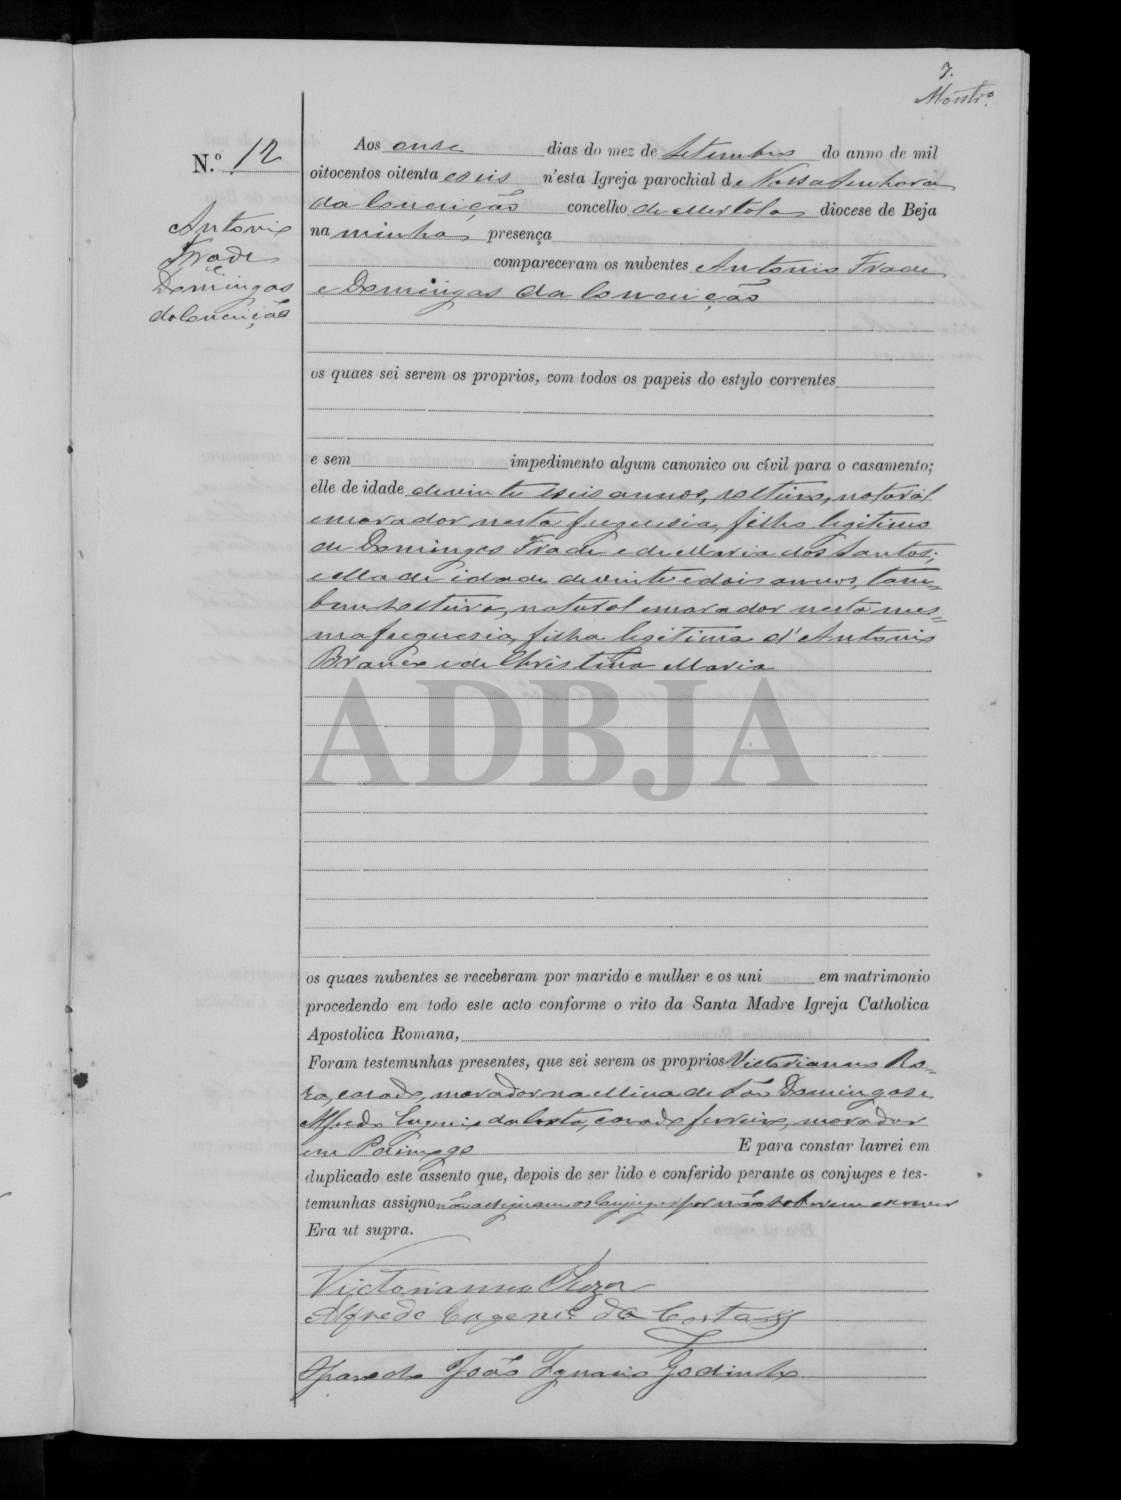 7.
N.º 12
Antonio
Frade
e
Domingas
da Conceição
Aos onze dias do mez de Setembro do anno de mil
oitocentos oitenta e seis n'esta Igreja parochial de Nossa Senhora
da Conceição concelho de Mertola diocese de Beja
na minha presença
compareceram os nubentes Antonio Frade
e Domingas da Conceição
os quaes sei serem os proprios, com todos os papeis do estylo correntes
e sem impedimento algum canonico ou civil para o casamento;
elle de idade de vinte e seis annos, solteiro, natural
e morador nesta freguesia, filho legitimo
de Domingos Frade e de Maria dos Santos;
e ella de idade de vinte e dois annos, tam=
bem solteira, natural e morador nesta mes=
ma freguesia, filha legitima d'Antonio
Branco e de Christina Maria
ADBJA
os quaes nubentes se receberam por marido e mulher e os uni em matrimonio
procedendo em todo este acto conforme o rito da Santa Madre Igreja Catholica
Apostolica Romana,
Foram testemunhas presentes, que sei serem os proprios Victorianno Ro=
za, casado, morador na Mina de São Domingos e
Alfredo Eugenio da Costa, casado ferreiro, morador
em Pomarão E para constar lavrei em
duplicado este assento que, depois de ser lido e conferido perante os conjuges e tes-
temunhas assigno não assignam os conjuges por não saberem escrever
Era ut supra.
Victorianno Roza
Alfredo Eugenio da Costa
O parocho João Ignacio Godinho